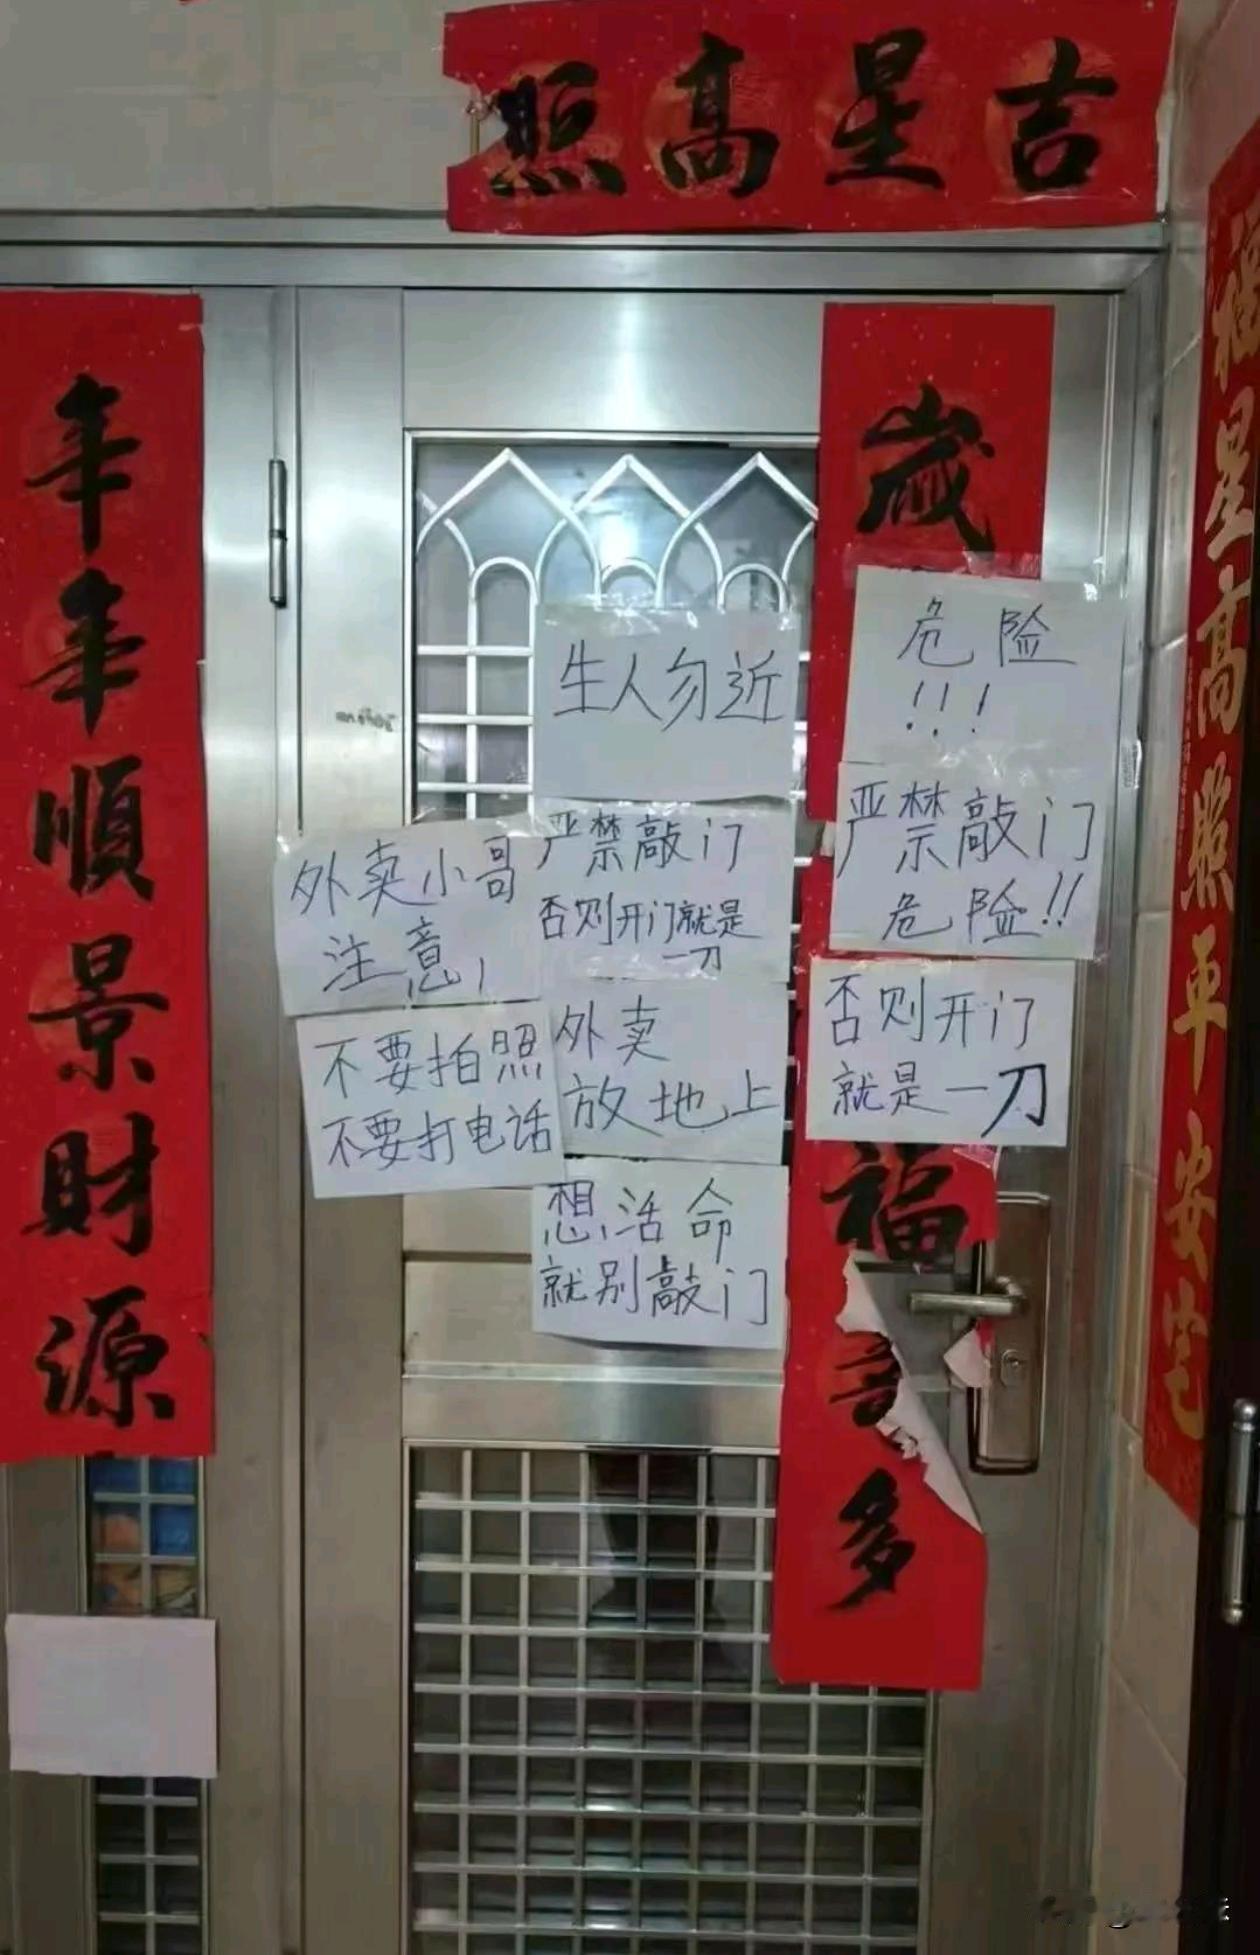 吉星高照
年年順景財源
歲
福
多
福星高照平安宅
生人勿近
危险
!!!
严禁敲门
危险!!
否则开门
就是一刀
外卖小哥
注意!
不要拍照
不要打电话
严禁敲门
否则开门就是
一刀
外卖
放地上
想活命
就别敲门